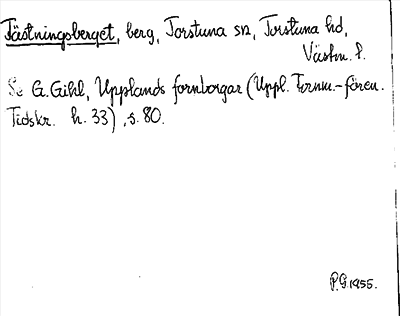 Fästningsberget, berg, Torstuna sn, Torstuna hd,
Västm. l.
Se G. Gihl, Upplands fornborgar (Uppl. Fornm.-fören.
Tidskr. h. 33), s. 80.
P.G. 1955.